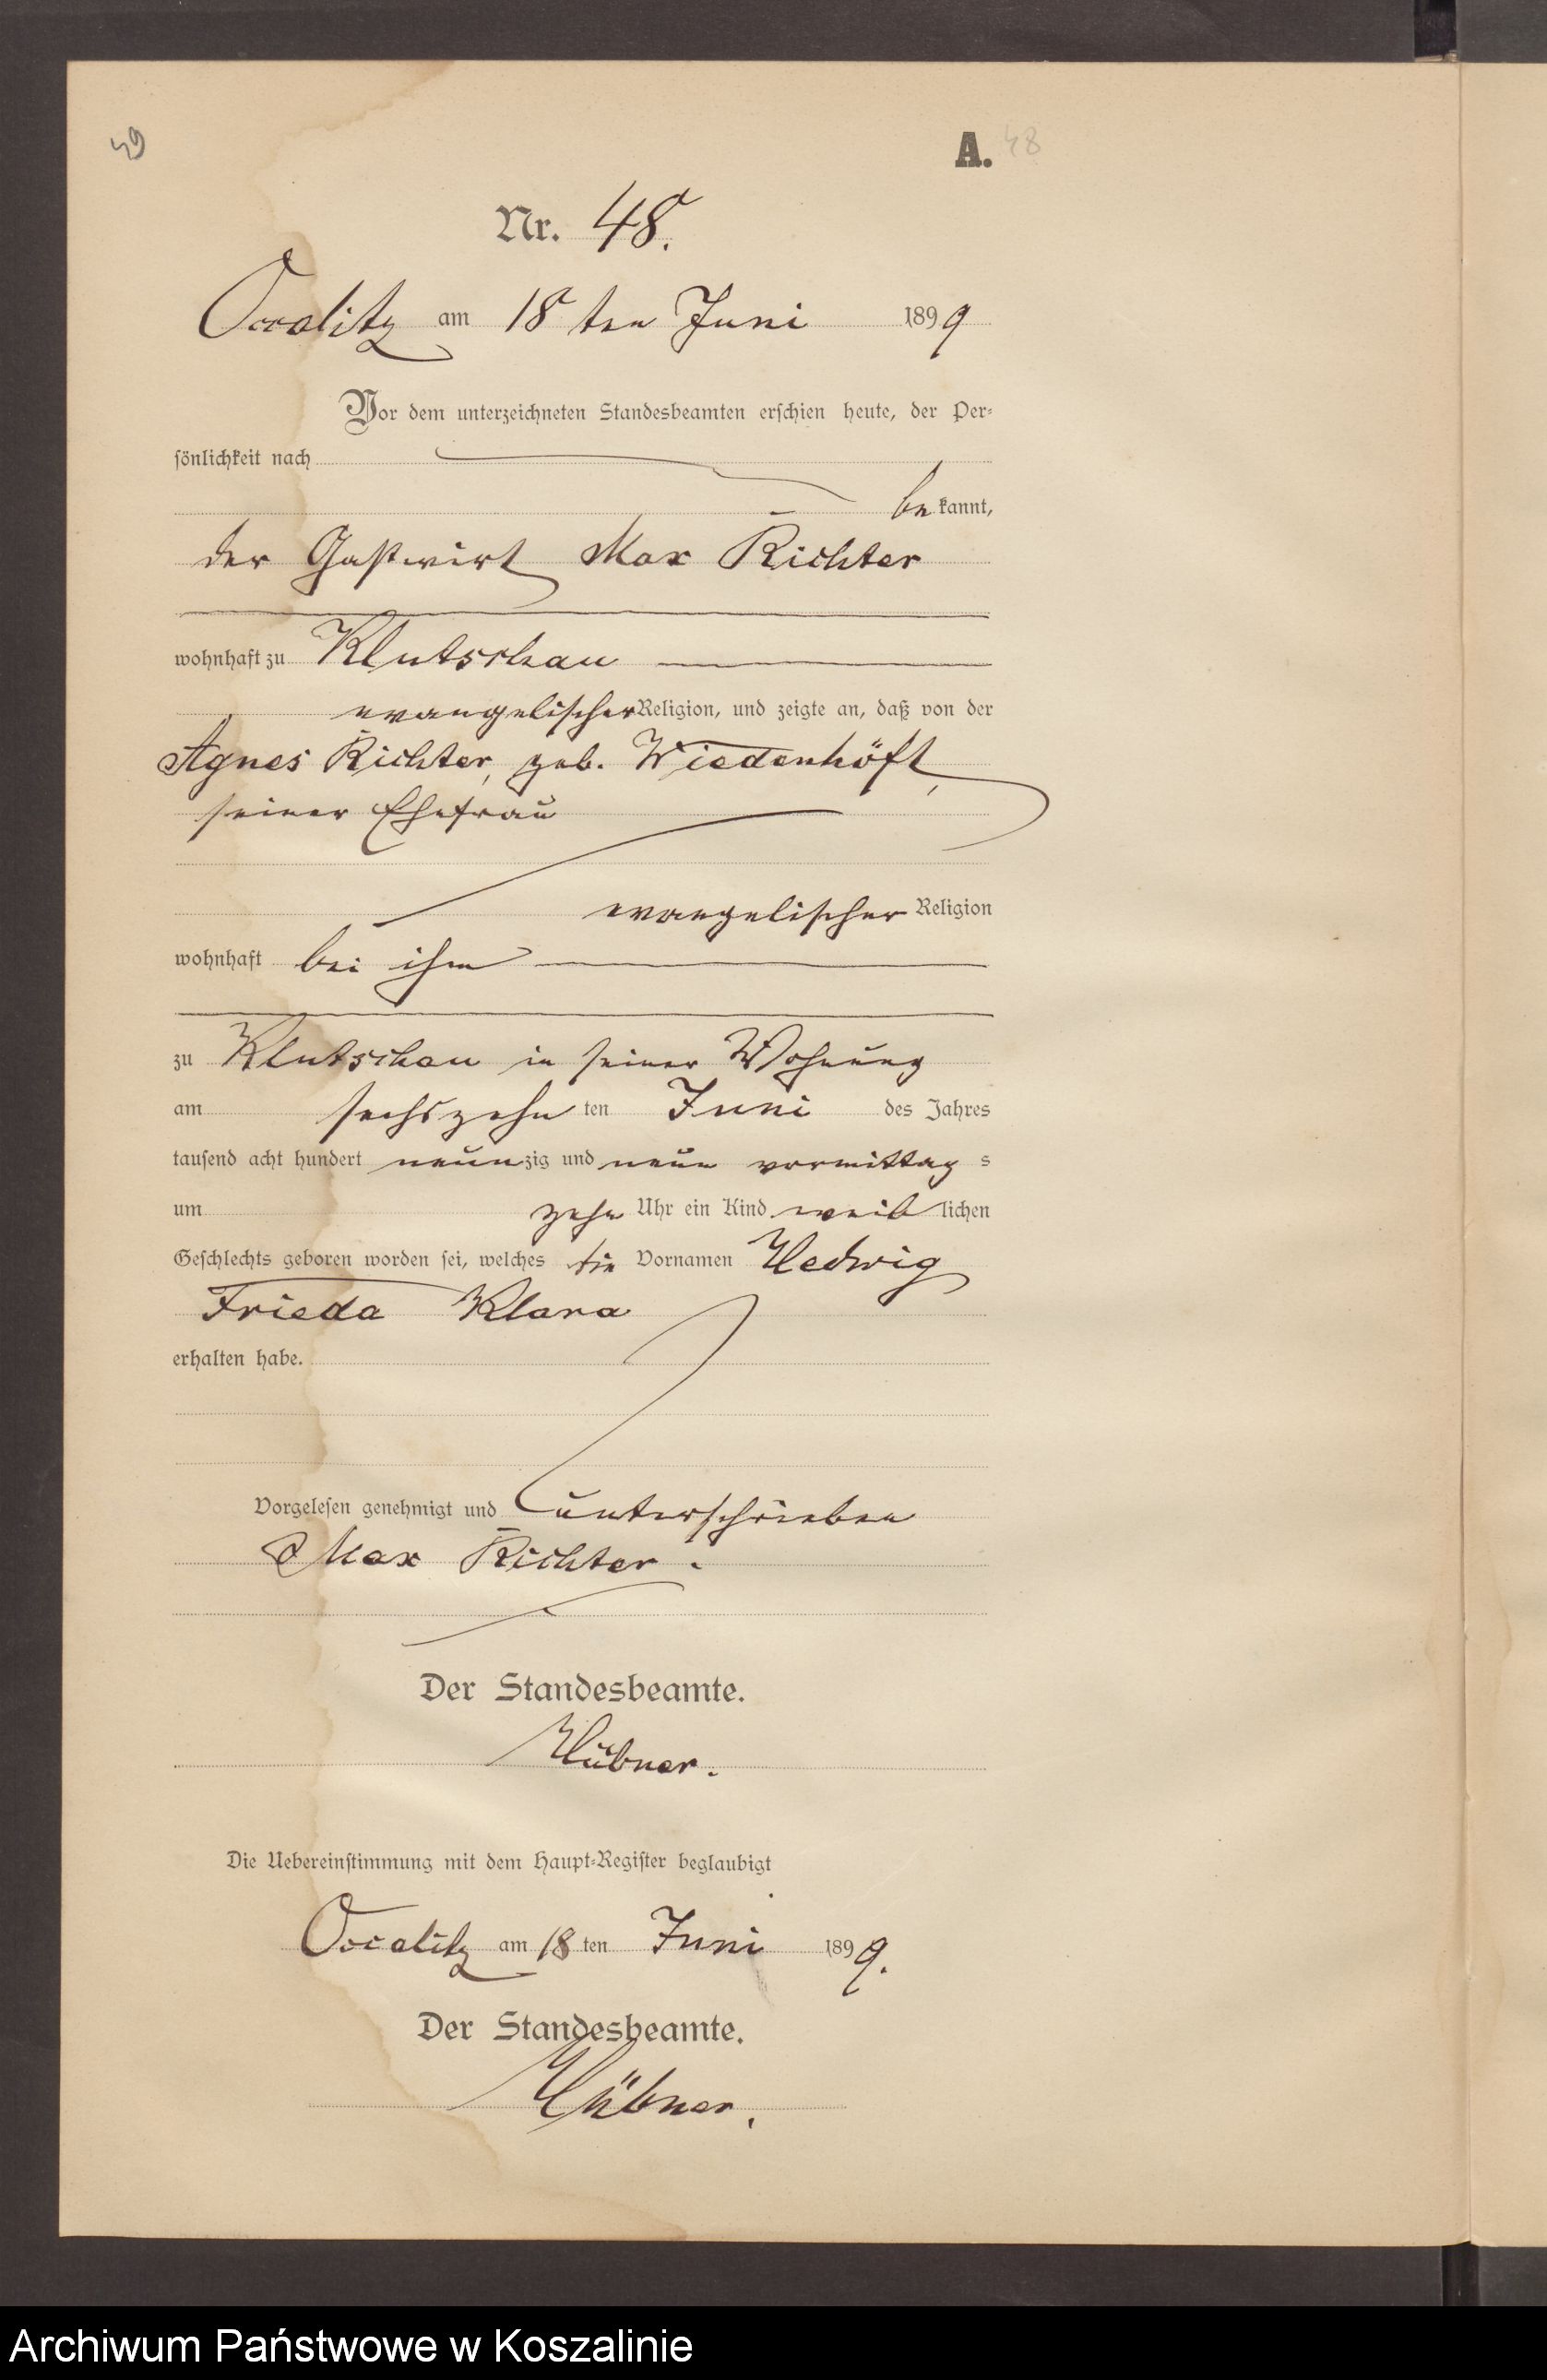 49
A. 48
Nr. 48.
Occalitz am 18 ten Juni 1899
Vor dem unterzeichneten Standesbeamten erschien heute, der Per-
sönlichkeit nach
be kannt,
der Gastwirt Max Richter
wohnhaft zu Klutschau
evangelischer Religion, und zeigte an, daß von der
Agnes Richter, geb. Wiedenhöft,
seiner Ehefrau
evangelischer Religion
wohnhaft bei ihm
zu Klutschau in seiner Wohnung
am sechszehn ten Juni des Jahres
tausend acht hundert neunzig und neun vormittag s
um zehn Uhr ein Kind weib lichen
Geschlechts geboren worden sei, welches die Vornamen Hedwig
Frieda Klara
erhalten habe.
Vorgelesen genehmigt und unterschrieben
Max Richter.
Der Standesbeamte.
Hübner.
Die Uebereinstimmung mit dem Haupt-Register beglaubigt
Occalitz am 18 ten Juni 1899.
Der Standesbeamte.
Hübner.
Archiwum Państwowe w Koszalinie